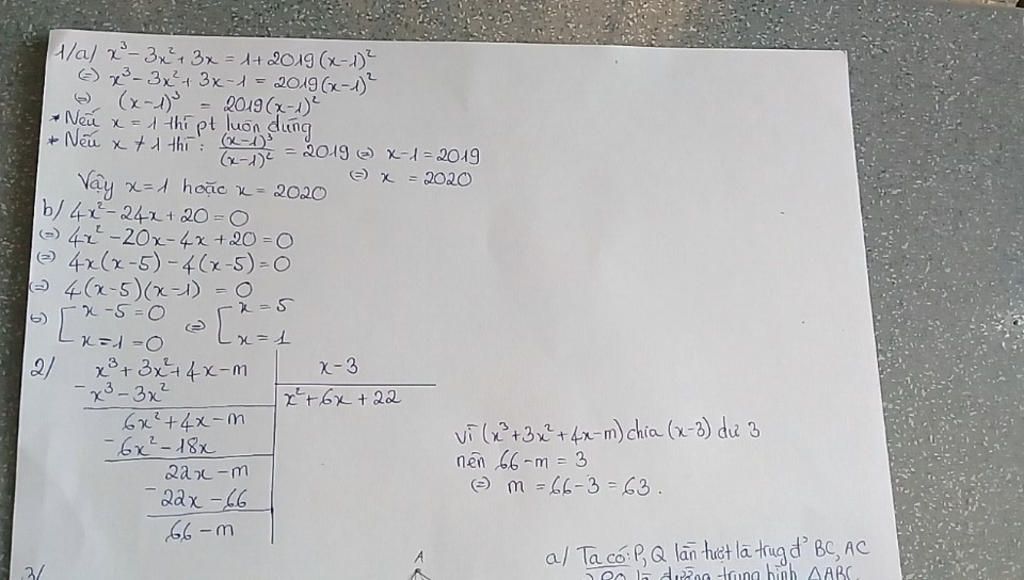 1/a/ x³ - 3x² + 3x = 1 + 2019(x-1)²
(=) x³ - 3x² + 3x - 1 = 2019(x-1)²
(=) (x-1)³ = 2019(x-1)²
* Nếu x = 1 thì pt luôn đúng
* Nếu x ≠ 1 thì: (x-1)³/(x-1)² = 2019 (=) x-1 = 2019
(=) x = 2020
Vậy x=1 hoặc x = 2020
b/ 4x² - 24x + 20 = 0
(=) 4x² - 20x - 4x + 20 = 0
(=) 4x(x-5) - 4(x-5) = 0
(=) 4(x-5)(x-1) = 0
(=) [ x - 5 = 0 (=) [ x = 5
x = 1 = 0 x = 1
2/ x³ + 3x² + 4x - m x - 3
- x³ - 3x² x² + 6x + 22
6x² + 4x - m
- 6x² - 18x
22x - m
- 22x - 66
66 - m
vì (x³ + 3x² + 4x - m) chia (x-3) dư 3
nên 66 - m = 3
(=) m = 66 - 3 = 63.
3/
A
a/ Ta có: P, Q lần lượt là trug đ³ BC, AC
PQ là đường trung bình △ABC